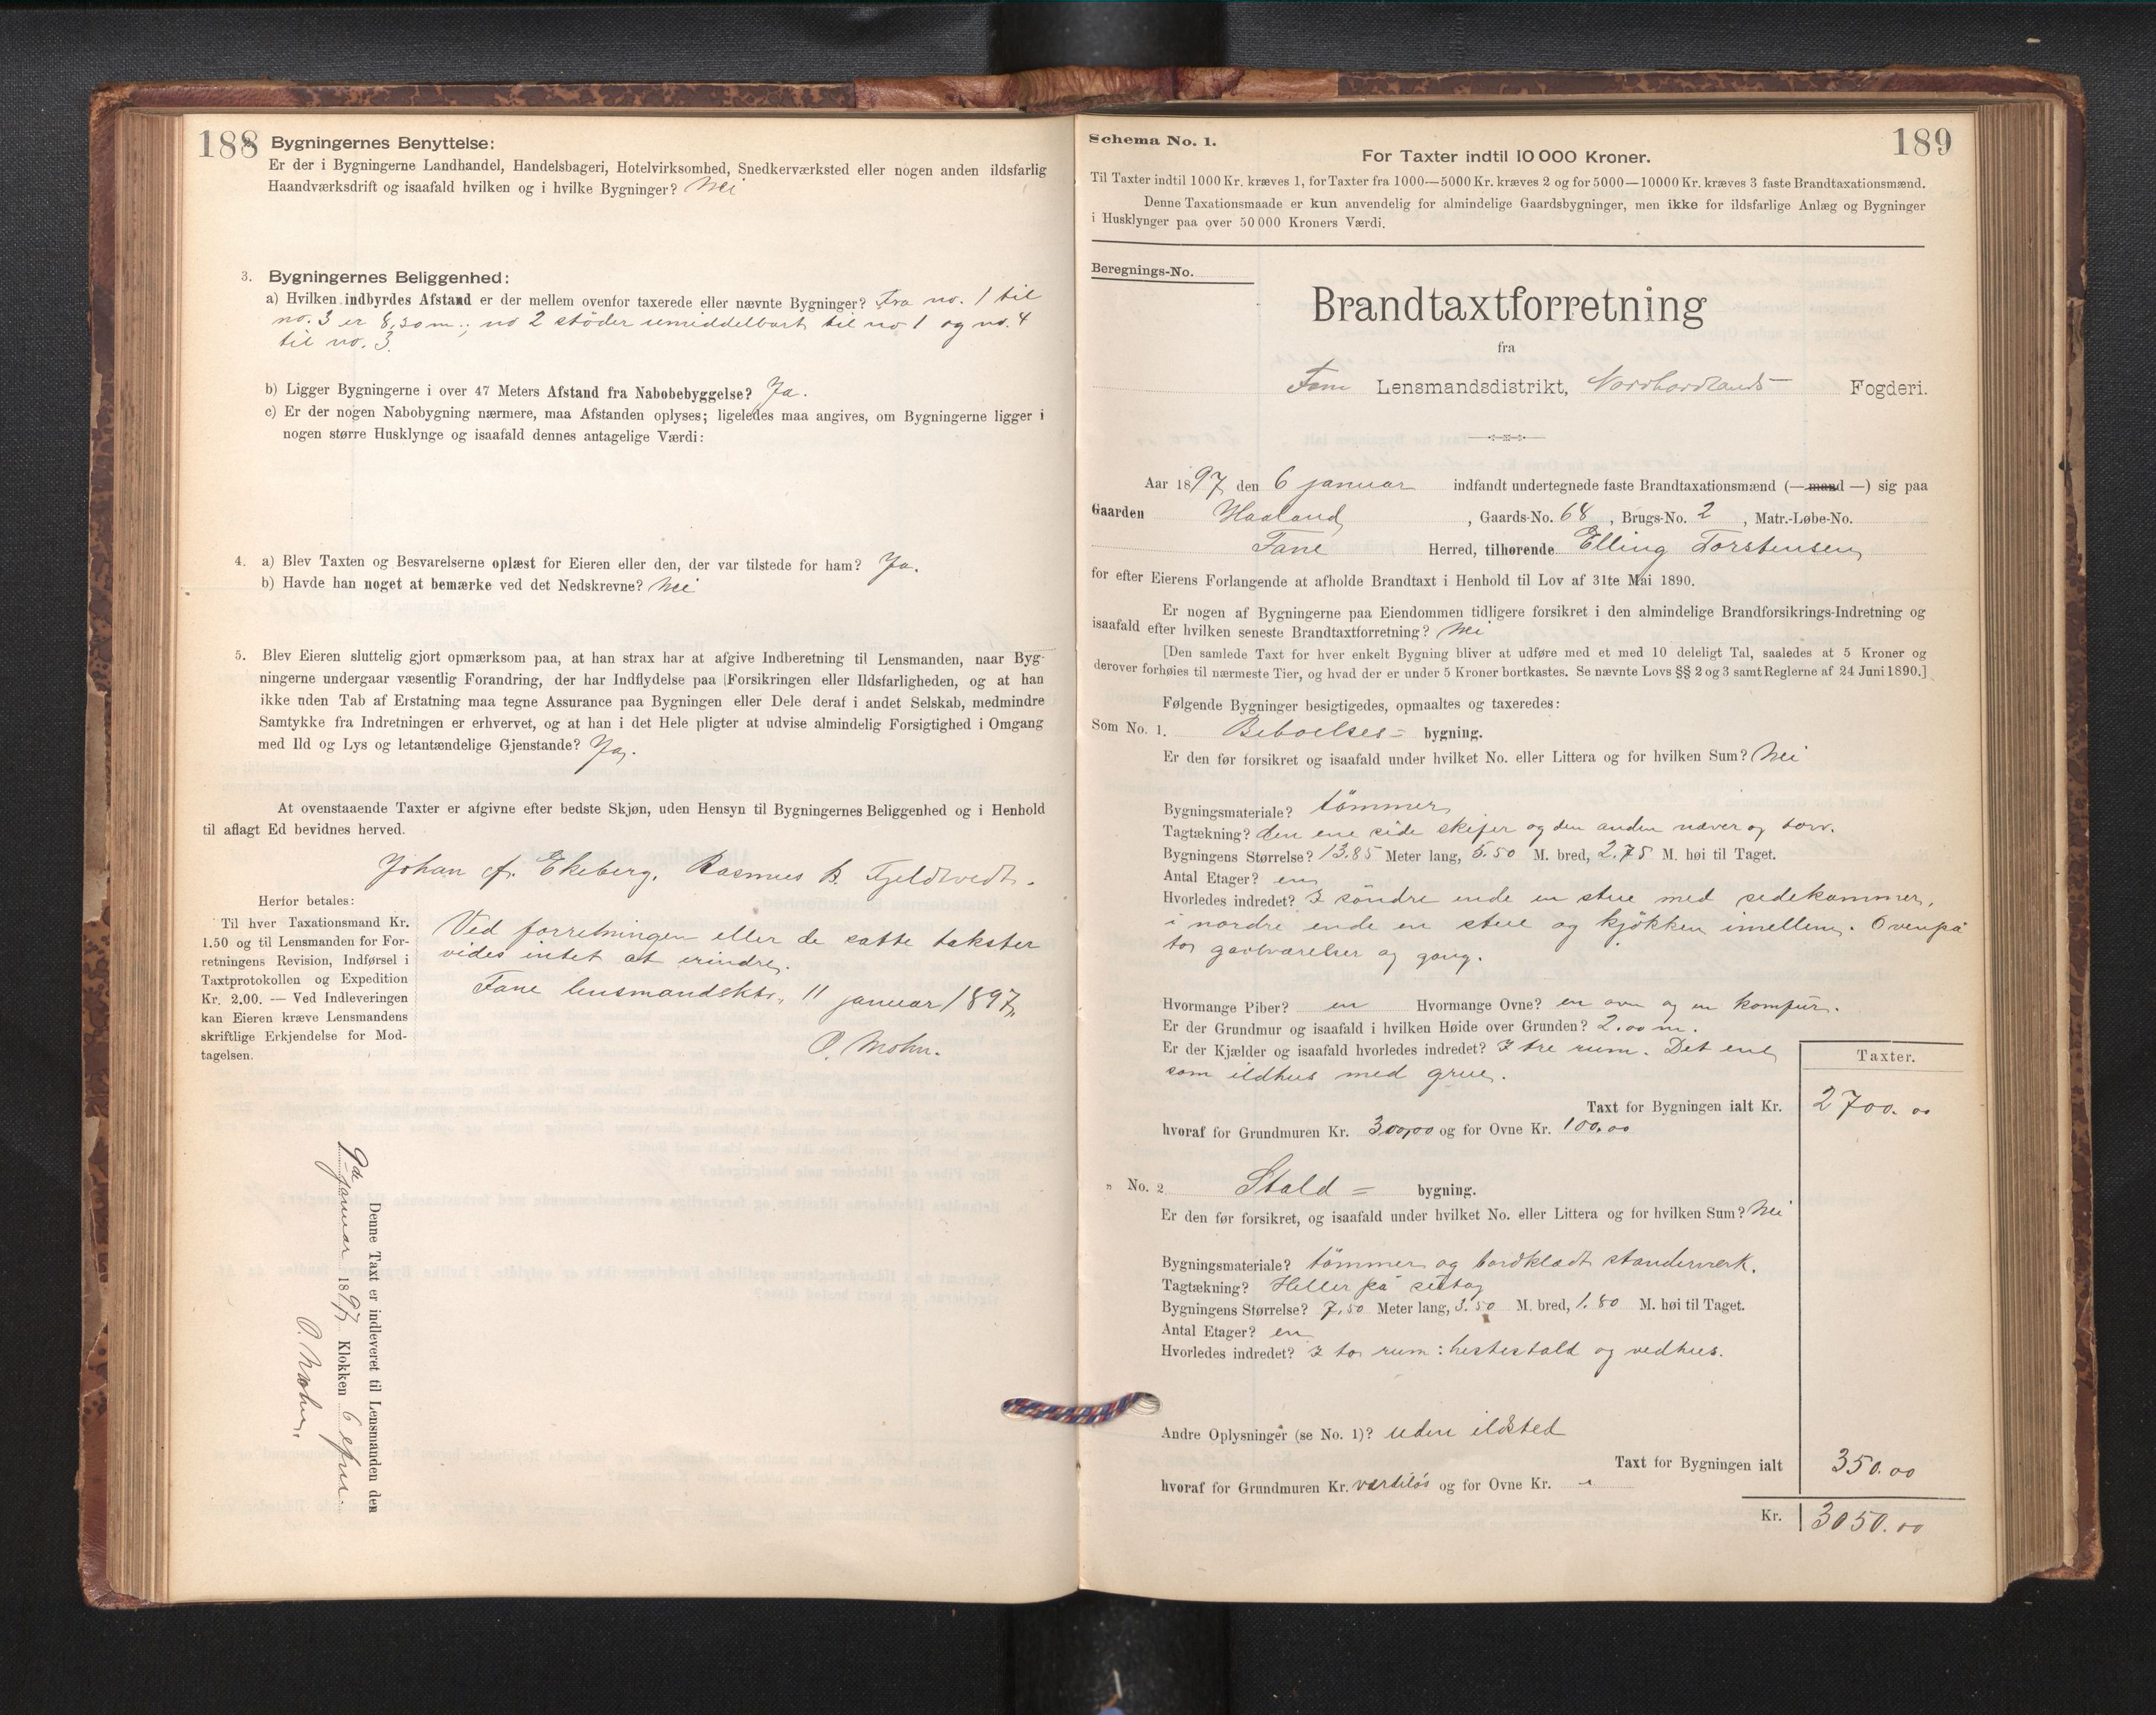 188
Bygningernes Benyttelse:
Er der i Bygningerne Landhandel, Handelsbageri, Hotelvirksomhed, Snedkerværksted eller nogen anden ildsfarlig
Haandværksdrift og isaafald hvilken og i hvilke Bygninger? Nei
3. Bygningernes Beliggenhed:
a) Hvilken indbyrdes Afstand er der mellem ovenfor taxerede eller nævnte Bygninger? Fra no. 1 til
no. 3 er 8,30 m.; no 2 støder umiddelbart til no 1 og no. 4
til no. 3.
b) Ligger Bygningerne i over 47 Meters Afstand fra Nabobebyggelse? Ja.
c) Er der nogen Nabobygning nærmere, maa Afstanden oplyses; ligeledes maa angives, om Bygningerne ligger i
nogen større Husklynge og isaafald dennes antagelige Værdi:
4. a) Blev Taxten og Besvarelserne oplæst for Eieren eller den, der var tilstede for ham? Ja.
b) Havde han noget at bemærke ved det Nedskrevne? Nei
5. Blev Eieren sluttelig gjort opmærksom paa, at han strax har at afgive Indberetning til Lensmanden, naar Byg-
ningerne undergaar væsentlig Forandring, der har Indflydelse paa Forsikringen eller Ildsfarligheden, og at han
ikke uden Tab af Erstatning maa tegne Assurance paa Bygningen eller Dele deraf i andet Selskab, medmindre
Samtykke fra Indretningen er erhvervet, og at han i det Hele pligter at udvise almindelig Forsigtighed i Omgang
med Ild og Lys og letantændelige Gjenstande? Ja.
At ovenstaaende Taxter er afgivne efter bedste Skjøn, uden Hensyn til Bygningernes Beliggenhed og i Henhold
til aflagt Ed bevidnes herved.
Johan A. Ekeberg. Rasmus B. Fjeldtvedt.
Herfor betales:
Til hver Taxationsmand Kr.
1.50 og til Lensmanden for For-
retningens Revision, Indførsel i
Taxtprotokollen og Expedition
Kr. 2.00. — Ved Indleveringen
kan Eieren kræve Lensmandens
skriftlige Erkjendelse for Mod-
tagelsen.
Ved forretningen eller de satte takster
vides intet at erindre.
Fane lensmandsktr., 11 januar 1897,
O. Mohn.
Denne Taxt er indleveret til Lensmanden den
9de januar 1897 Klokken 6 efm.
O. Mohn.
Schema No. 1.
189
For Taxter indtil 10 000 Kroner.
Til Taxter indtil 1000 Kr. kræves 1, for Taxter fra 1000—5000 Kr. kræves 2 og for 5000—10000 Kr. kræves 3 faste Brandtaxationsmænd.
Denne Taxationsmaade er kun anvendelig for almindelige Gaardsbygninger, men ikke for ildsfarlige Anlæg og Bygninger
i Husklynger paa over 50 000 Kroners Værdi.
Beregnings-No.
Brandtaxtforretning
fra
Fane Lensmandsdistrikt, Nordhordlands Fogderi.
Aar 1897, den 6 januar indfandt undertegnede faste Brandtaxationsmænd (— mand —) sig paa
Gaarden Haaland, , Gaards-No. 68 , Brugs-No. 2 , Matr.-Løbe-No.
Fane Herred, tilhørende Elling Torstensen,
for efter Eierens Forlangende at afholde Brandtaxt i Henhold til Lov af 31te Mai 1890.
Er nogen af Bygningerne paa Eiendommen tidligere forsikret i den almindelige Brandforsikrings-Indretning og
isaafald efter hvilken seneste Brandtaxtforretning? Nei
[Den samlede Taxt for hver enkelt Bygning bliver at udføre med et med 10 deleligt Tal, saaledes at 5 Kroner og
derover forhøies til nærmeste Tier, og hvad der er under 5 Kroner bortkastes. Se nævnte Lovs §§ 2 og 3 samt Reglerne af 24 Juni 1890.]
Følgende Bygninger besigtigedes, opmaaltes og taxeredes:
Som No. 1. Beboelses= bygning.
Er den før forsikret og isaafald under hvilket No. eller Littera og for hvilken Sum? Nei
Bygningsmateriale? tømmer,
Tagtækning? den ene side skifer og den anden næver og torv.
Bygningens Størrelse? 13.85 Meter lang, 5.50 M. bred, 2.75 M. høi til Taget.
Antal Etager? en
Hvorledes indredet? I søndre ende en stue med sidekammer,
i nordre ende en stue og kjøkken imellem. Ovenpå
to gavlværelser og gang.
Hvormange Piber? en Hvormange Ovne? en ovn og en komfur.
Er der Grundmur og isaafald i hvilken Høide over Grunden? 2.00 m.
Er der Kjælder og isaafald hvorledes indredet? I tre rum. Det ene
som ildhus med grue.
Taxter.
Taxt for Bygningen ialt Kr. 2700.00
hvoraf for Grundmuren Kr. 300,00 og for Ovne Kr. 100.00
" No. 2 Stald = bygning.
Er den før forsikret, og isaafald under hvilket No. eller Littera og for hvilken Sum? Nei
Bygningsmateriale? tømmer og bordklædt standerværk.
Tagtækning? Heller på
Bygningens Størrelse? 7,50 Meter lang, 3.50 M. bred, 1.80 M. høi til Taget.
Antal Etager? en
Hvorledes indredet? I to rum: hestestald og vedhus.
Andre Oplysninger (se No. 1)? uden ildsted
Taxt for Bygningen ialt 350.00
hvoraf for Grundmuren Kr. værdiløs og for Ovne Kr.
Kr. 3050.00